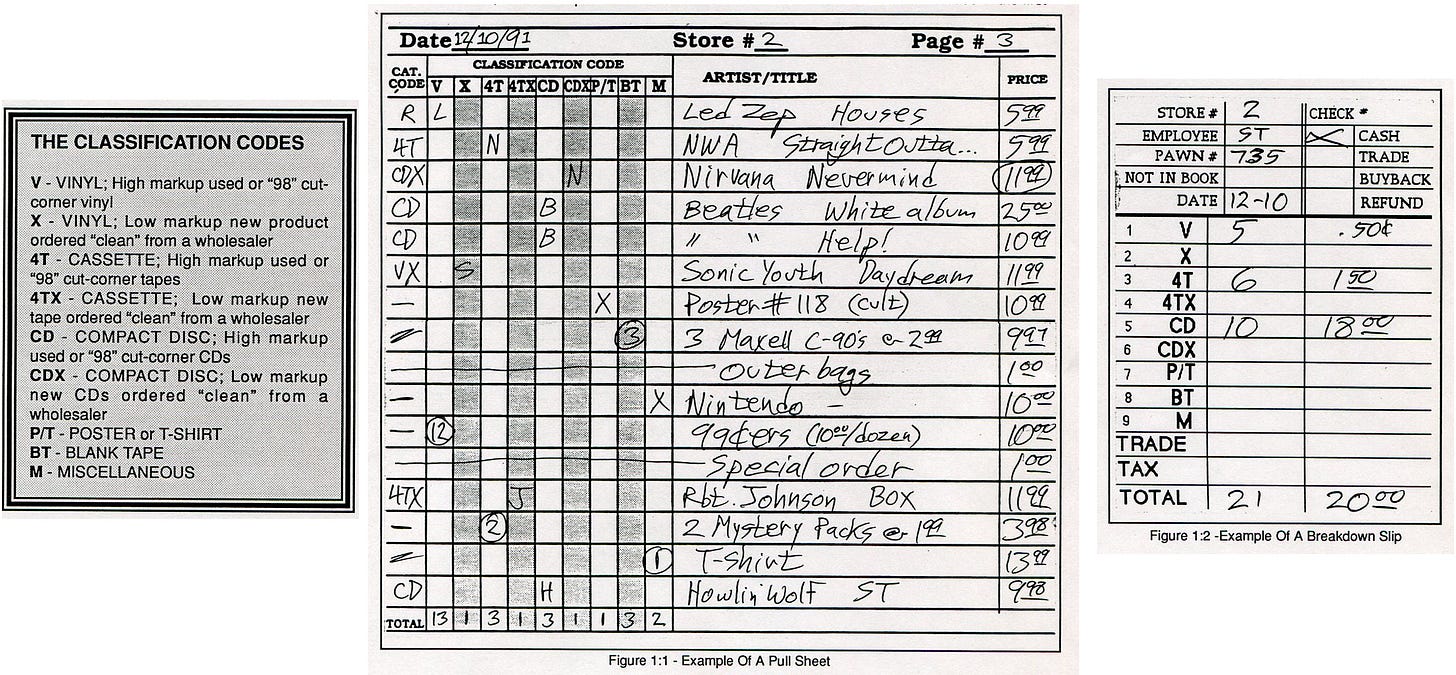 THE CLASSIFICATION CODES
V - VINYL; High markup used or “98” cut-
corner vinyl
X - VINYL; Low markup new product
ordered “clean” from a wholesaler
4T - CASSETTE; High markup used or
“98” cut-corner tapes
4TX - CASSETTE; Low markup new
tape ordered “clean” from a wholesaler
CD - COMPACT DISC; High markup
used or “98” cut-corner CDs
CDX - COMPACT DISC; Low markup
new CDs ordered “clean” from a
wholesaler
P/T - POSTER or T-SHIRT
BT - BLANK TAPE
M - MISCELLANEOUS
Date 12/10/91 Store # 2 Page # 3
CLASSIFICATION CODE
CAT. CODE V X 4T 4TX CD CDX P/T BT M ARTIST/TITLE PRICE
R L Led Zep Houses 5 99
4T N NWA Straight Outta... 5 99
CDX N Nirvana Nevermind 11 99
CD B Beatles White album 25 00
CD B " " Help! 10 99
VX S Sonic Youth Daydream 11 99
— X Poster # 118 (cult) 10 99
3 3 Maxell C-90's @ 2 99 9 97
Outer bags 1 00
— X Nintendo - 10 00
— 12 99¢ers (10 00/dozen) 10 00
Special order 1 00
4TX J Rbt. Johnson BOX 11 99
— 2 2 Mystery Packs @ 1 99 3 98
1 T-Shirt 13 99
CD H Howlin' Wolf ST 9 98
TOTAL 13 1 3 1 3 1 1 3 2
Figure 1:1 - Example Of A Pull Sheet
STORE # 2 CHECK #
EMPLOYEE ST X CASH
PAWN # 735 TRADE
NOT IN BOOK BUYBACK
DATE 12-10 REFUND
1 V 5 .50¢
2 X
3 4T 6 1 50
4 4TX
5 CD 10 18 00
6 CDX
7 P/T
8 BT
9 M
TRADE
TAX
TOTAL 21 20 00
Figure 1:2 -Example Of A Breakdown Slip